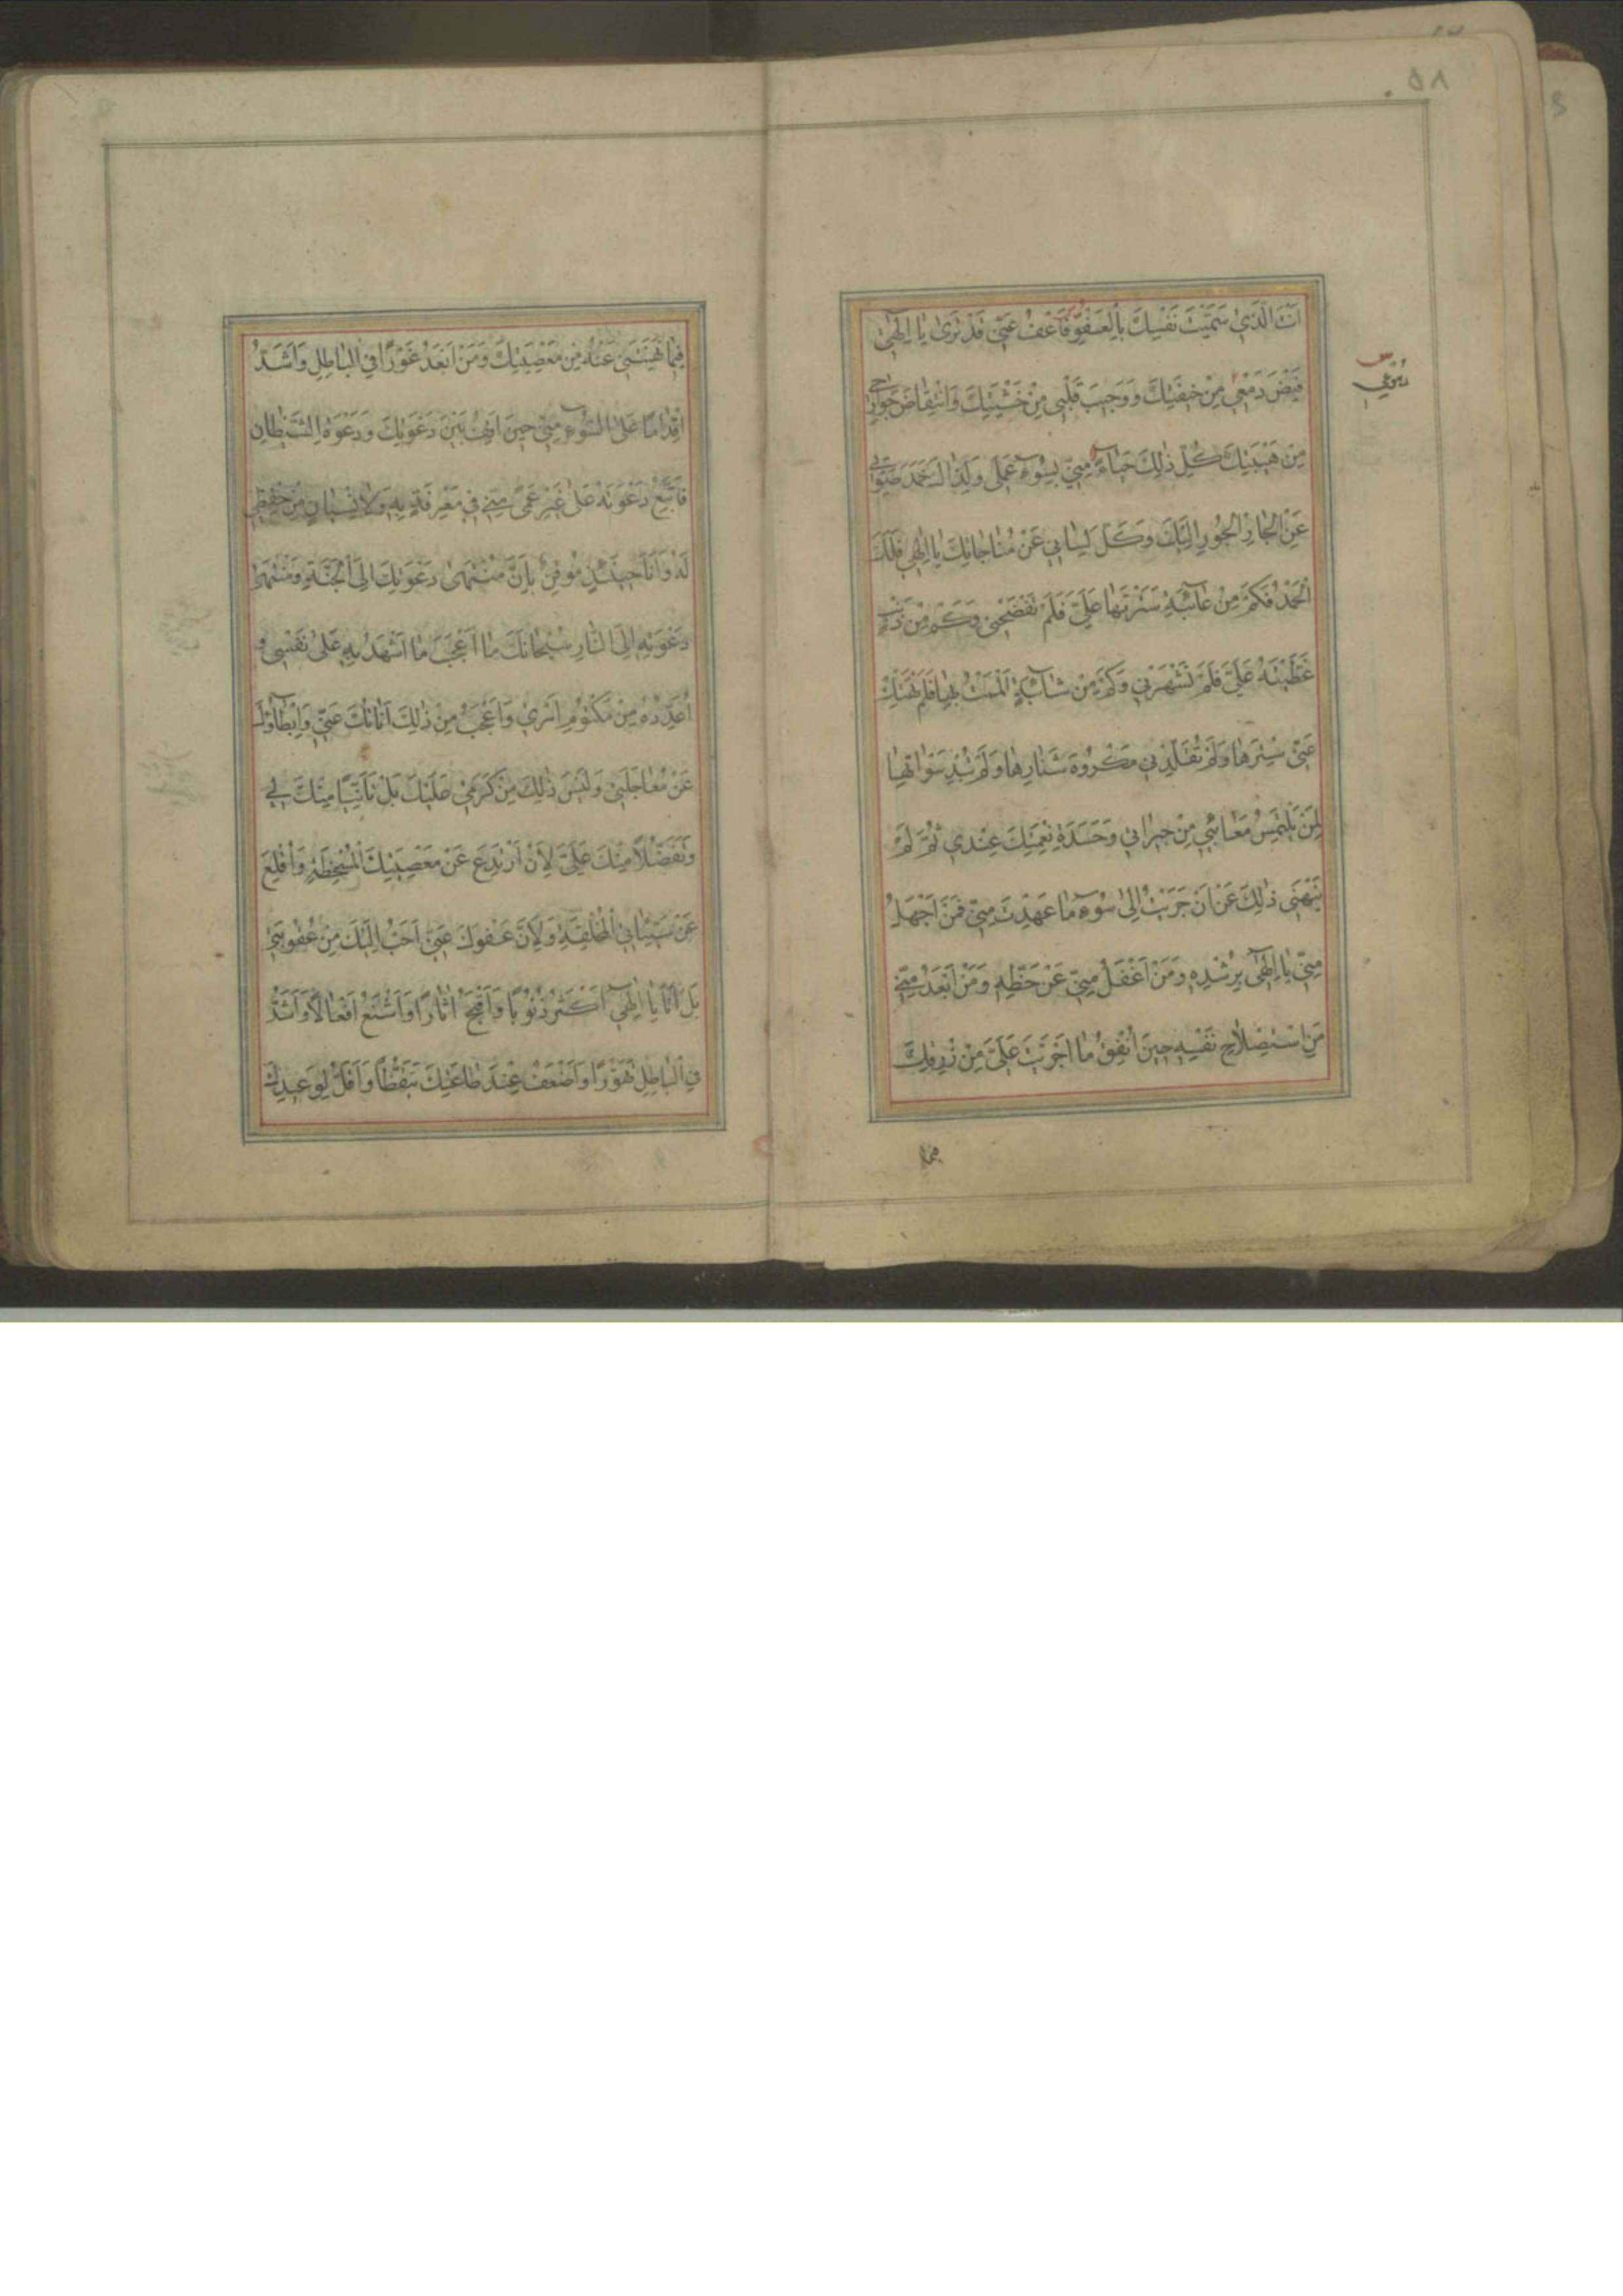 ٥٨
اَنْتَ الَّذِي سَمَّيْتَ نَفْسَكَ بِالْعَفْوِ فَاعْفُ عَنِّي قَدْ تَرٰى يَا اِلٰهِي
فَيْضَ دَمْعِي مِنْ خِيفَتِكَ وَوَجِيبَ قَلْبِي مِنْ خَشْيَتِكَ وَانْتِفَاضَ جَوَارِحِي
مِنْ هَيْبَتِكَ كُلُّ ذٰلِكَ حَيَاءً مِنِّي بِسُوءِ عَمَلِي وَلِذَاكَ خَمَدَ صَوْتِي
عَنِ الْجَارِ الْجُورِ اِلَيْكَ وَكَلَّ لِسَانِي عَنْ مُنَاجَاتِكَ يَا اِلٰهِي فَلَكَ
الْحَمْدُ فَكَمْ مِنْ عَائِبَةٍ سَتَرْتَهَا عَلَيَّ فَلَمْ تَفْضَحْنِي وَكَمْ مِنْ ذَنْبٍ
غَطَّيْتَهُ عَلَيَّ فَلَمْ تَشْهَرْنِي وَكَمْ مِنْ شَائِبَةٍ اَلْمَمْتُ بِهَا فَلَمْ تَهْتِكْ
عَنِّي سِتْرَهَا وَلَمْ تُقَلِّدْنِي مَكْرُوهَ شَنَارِهَا وَلَمْ تُبْدِ سَوْاٰتِهَا
لِمَنْ يَلْتَمِسُ مَعَائِبِي مِنْ جِيرَانِي وَحَسَدَةِ نِعْمَتِكَ عِنْدِي ثُمَّ لَمْ
يَنْهَنِي ذٰلِكَ عَنْ اَنْ جَرَيْتُ اِلٰى سُوءِ مَا عَهِدْتَ مِنِّي فَمَنْ اَجْهَلُ
مِنِّي يَا اِلٰهِي بِرُشْدِهِ وَمَنْ اَغْفَلُ مِنِّي عَنْ حَظِّهِ وَمَنْ اَبْعَدُ مِنِّي
مِنِ اسْتِصْلَاحِ نَفْسِهِ حِينَ اُنْفِقُ مَا اَجْرَيْتَ عَلَيَّ مِنْ رِزْقِكَ
فيما
فِيمَا نَهَيْتَنِي عَنْهُ مِنْ مَعْصِيَتِكَ وَمَنْ اَبْعَدُ غَوْرًا فِي الْبَاطِلِ وَاَشَدُّ
اِقْدَامًا عَلَى السُّوءِ مِنِّي حِينَ اَقِفُ بَيْنَ دَعْوَتِكَ وَدَعْوَةِ الشَّيْطَانِ
فَاَتَّبِعُ دَعْوَتَهُ عَلٰى غَيْرِ عَمًى مِنِّي فِي مَعْرِفَةٍ بِهِ وَلَا نِسْيَانٍ مِنْ حِفْظِي
لَهُ وَاَنَا حِينَئِذٍ مُوقِنٌ بِاَنَّ مُنْتَهٰى دَعْوَتِكَ اِلَى الْجَنَّةِ وَمُنْتَهٰى
دَعْوَتِهِ اِلَى النَّارِ سُبْحَانَكَ مَا اَعْجَبَ مَا اَشْهَدُ بِهِ عَلٰى نَفْسِي وَ
اُعَدِّدُهُ مِنْ مَكْتُومِ اَمْرِي وَاَعْجَبُ مِنْ ذٰلِكَ اَنَاتُكَ عَنِّي وَاِبْطَاؤُكَ
عَنْ مُعَاجَلَتِي وَلَيْسَ ذٰلِكَ مِنْ كَرَمِي عَلَيْكَ بَلْ تَاَنِّيًا مِنْكَ لِي
وَتَفَضُّلًا مِنْكَ عَلَيَّ لِاَنْ اَرْتَدِعَ عَنْ مَعْصِيَتِكَ الْمُسْخِطَةِ وَاُقْلِعَ
عَنْ سَيِّئَاتِي الْمُخْلِقَةِ وَلِاَنَّ عَفْوَكَ عَنِّي اَحَبُّ اِلَيْكَ مِنْ عُقُوبَتِي
بَلْ اَنَا يَا اِلٰهِي اَكْثَرُ ذُنُوبًا وَاَقْبَحُ اٰثَارًا وَاَشْنَعُ اَفْعَالًا وَاَشَدُّ
فِي الْبَاطِلِ تَهَوُّرًا وَاَضْعَفُ عِنْدَ طَاعَتِكَ تَيَقُّظًا وَاَقَلُّ لِوَعِيدِكَ